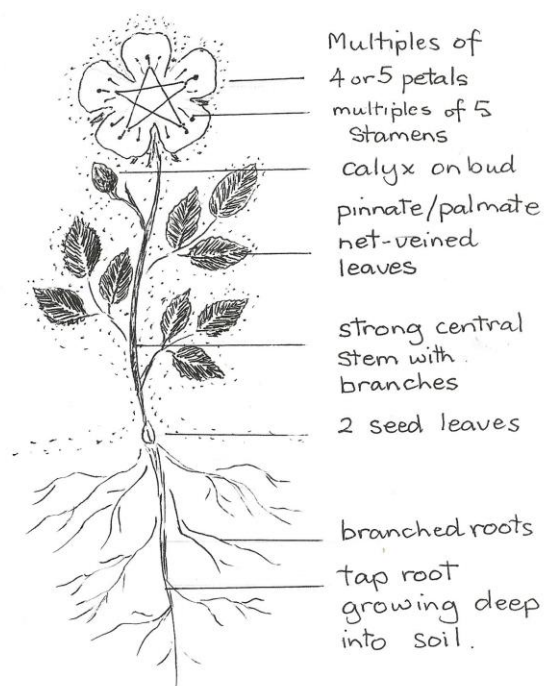 Multiples of
4 or 5 petals
multiples of 5
Stamens
calyx on bud
pinnate/palmate
net-veined
leaves
strong central
Stem with
branches
2 seed leaves
branched roots
tap root
growing deep
into soil.